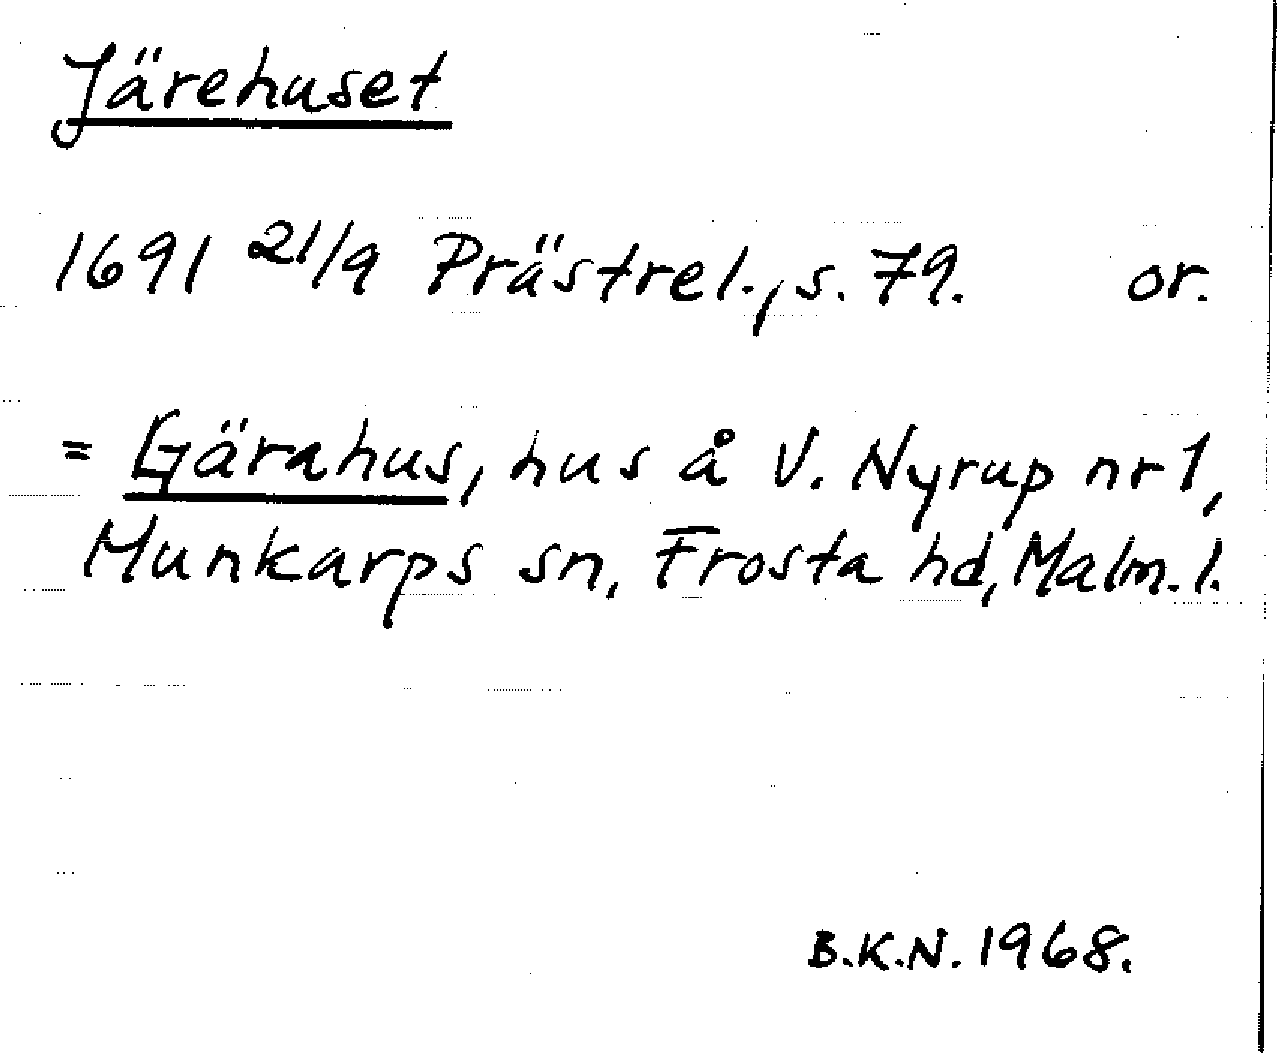 Järehuset
1691 21/9 Prästrel., s. 79. or.
= Gärahus, hus å V. Nyrup nr 1,
Munkarps sn, Frosta hd, Malm. l.
B.K.N. 1968.